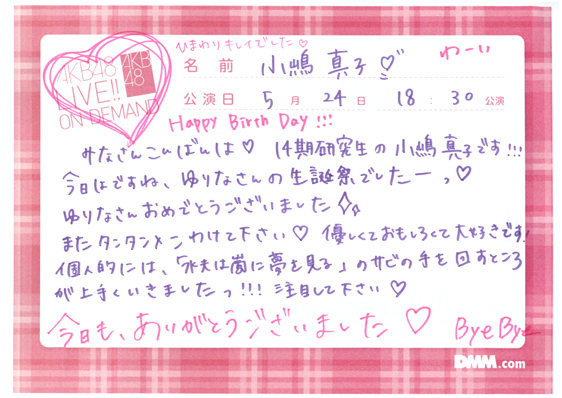 ひまわりキレイでした♡
AKB48
LIVE!!
ON DEMAND
AKB
48
名前 小嶋 真子♡
わーい
公演日 5月24日 18:30公演
Happy Birth Day!!!
みなさんこんばんは♡ 14期研究生の小嶋真子です!!!
今日はですね、ゆりなさんの生誕祭でしたーっ♡
ゆりなさんおめでとうございました
またタンタンメンわけて下さい♡ 優しくておもしろくて大好きです!
個人的には、「水夫は嵐に夢を見る」のサビの手を回すところ
が上手くいきましたっ!!! 注目して下さい♡
今日も、ありがとうございました♡ ByeBye
DMM.com